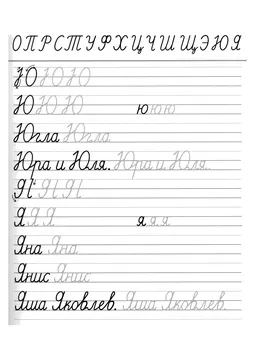 О П Р С Т У Ф Х Ц Ч Ш Щ Э Ю Я
Ю Ю Ю
Ю Ю Ю ю ю ю
Югла Югла
Юра и Юля. Юра и Юля.
Я Я Я
Я Я Я я я я
Яна Яна
Янис Янис
Яша Яковлев. Яша Яковлев.